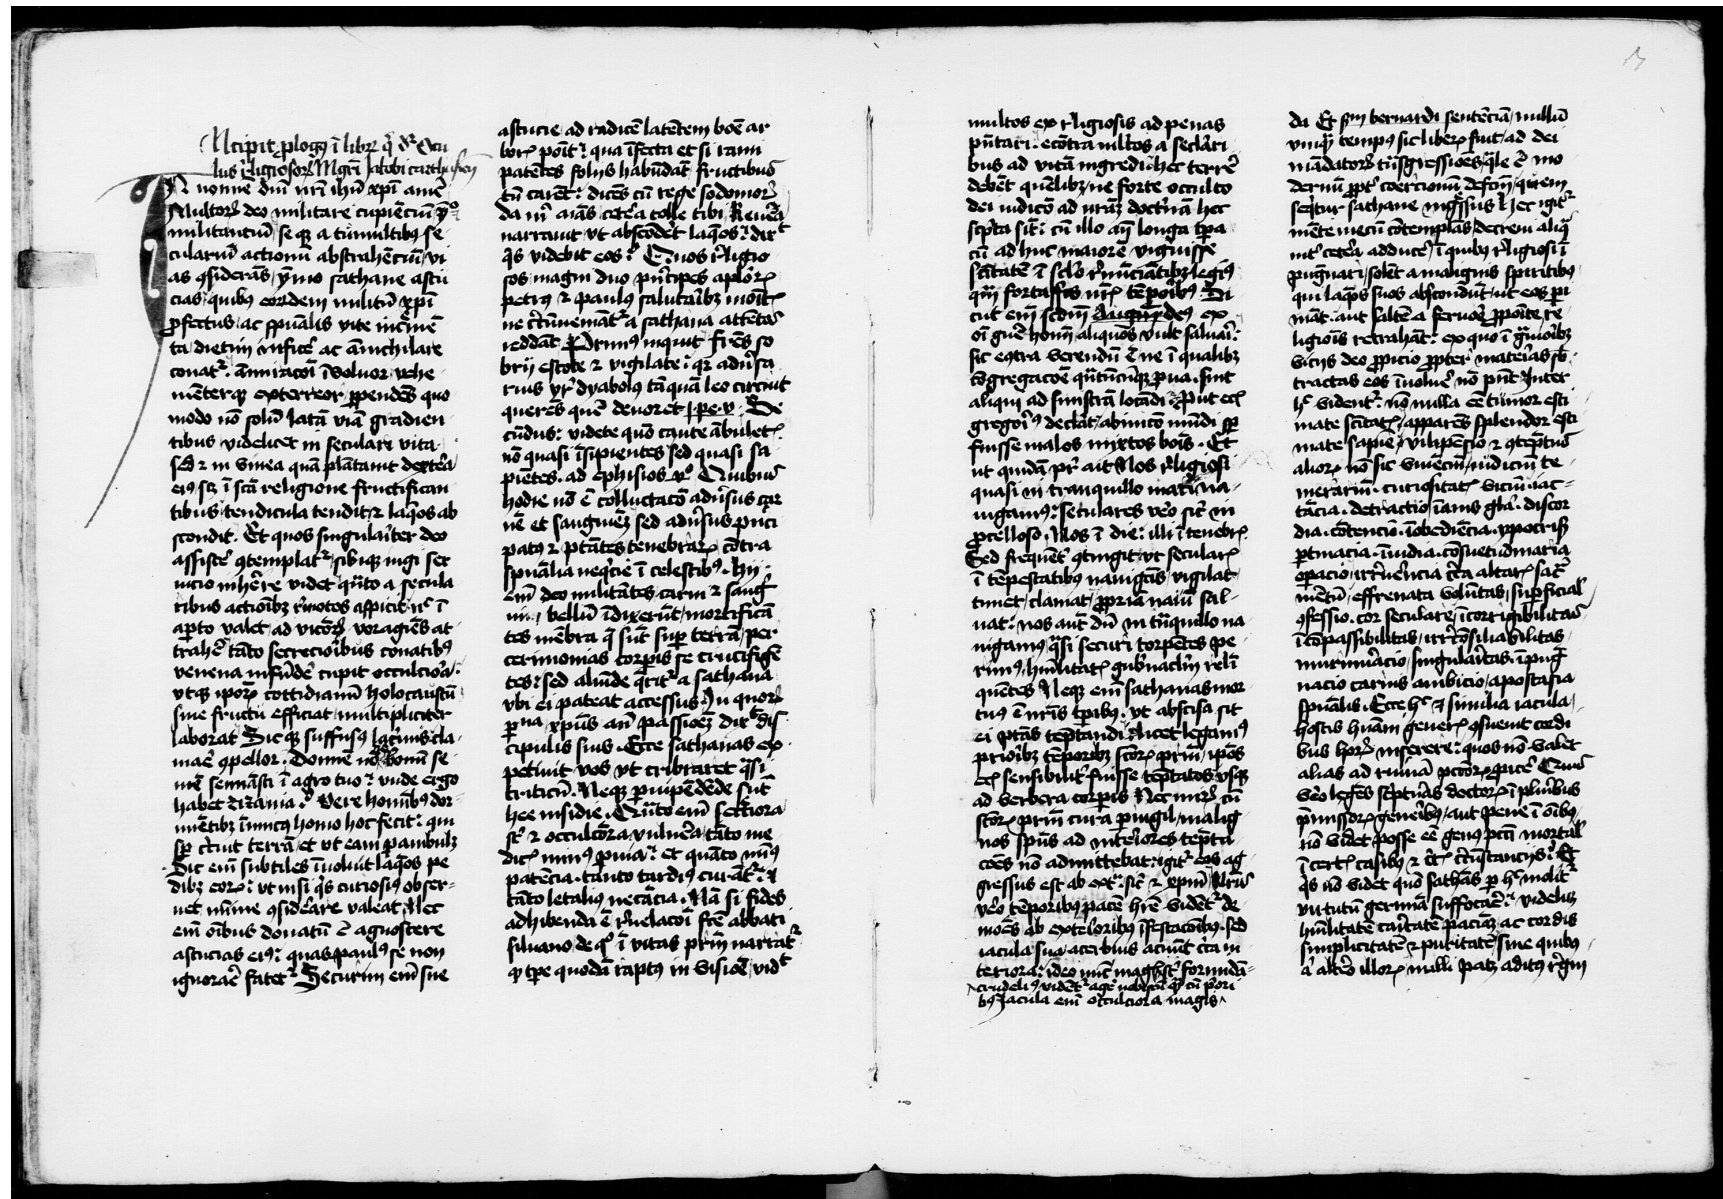 Incipit plogꝰ ī libr q̄ dr Ocu
lus religiosoꝝ Mgrī Jacobi carthusien
In nomine dnī nrī ihū xp̄i amē
Multoꝝ deo militare cupiēciū
militantium se qꝫ a tumultibus se
culariū actionū abstrahēciū vi
as ꝯsiderās ymo sathane astu
cias quibꝰ eordem militū xp̄i
ꝓfectus ac spūalis vite incrimē
ta dietim inficē ac ānichilare
conatr āmiracōī īvoluor vehe
mēterqꝫ exterreor ꝑpendēs quo
modo nō solū latā viā gradien
tibus videlicet in seculari vita
sꝫ ⁊ in vinea quā plātauit dextera
eiꝰ scꝫ ī scā religione fructifican
tibus tendicula tendit ⁊ laq̄os ab
scondit Et quos singulariter deo
assistē ꝯtemplatr sibiqꝫ iugi ser
uicio inherere videt q̄nto a secula
ribus actioībꝫ remotos aspicit nꝰ ī
aꝑto valet ad vicioꝝ voragines at
trahē tāto secrecioribus conatibꝰ
venena infūdē cupit occulciora
vtqꝫ ipoꝝ cottidianū holocaustū
sine fructu efficiat multipliciter
laborat Sicqꝫ suffusꝰ lacrimis cla
mare ꝯpellor Domine nōne bonū se
mē seminasti ī agro tuo vnde ergo
habet zizania Vere hominibꝰ dor
mientibꝫ inimicꝰ homo hoc fecit qui
sꝑ circuit terrā et vt eam ꝑambulꝫ
Sic em̄ subtiles īuoluit laq̄os pe
dibꝫ eoꝝ vt nisi q̄s curiosiꝰ obser
uet minime ꝯsiderare valeat Nec
em̄ oībus donatū ē agnoscere
astucias eiꝰ quas paulꝰ se non
ignorare fatetr Securim em̄ sue
astucie ad radicē latētem boē ar
borꝫ poīt qua īfecta et si rami
patētes folijs habūdāt fructibus
tn̄ carēt dicēs cū rege sodomoꝝ
da m̄ aīas cetera tolle tibi Reuera
narrauit vt absconderet laq̄os dixt
q̄s videbit eos Quos religio
sos magni duo prīcipes apl̄oꝝ
petrꝰ ⁊ paulꝰ salutaribꝫ monitꝫ
ne circūueniātr a sathana attētos
reddāt Primꝰ inquit frēs so
brij estote ⁊ vigilate qꝛ adūsa
rius vr̄ dyabolꝰ tāquā leo circuit
querēs quē deuoret j pe v Se
cūdus videte quō caute ābuletꝫ
nō quasi īsipientes sed quasi sa
piētes ad ephisios vº Quibus
hodie nō ē colluctacō adūsus car
nē et sanguinēꝫ sed adūsus prīci
patꝰ ⁊ ptātes tenebraꝝ cōtra
spūalia neq̄cie ī celestibꝰ Hij
em̄ deo militātes carni ⁊ sang
ni bellū īdixerūt mortificā
tes mēbra q̄ sūt suꝑ terrā per
cerimonias corꝑis se crucifigē
tes sed aliūde q̄ritr a sathana
vbi ei pateat accessus In quoꝝ
xp̄us an̄ passioēꝫ dixt dis
cipulis suis Ecce sathanas ex
petiuit vos vt cribraret q̄si
triticū Neqꝫ ꝑuipēdēde sūt
hee insidie Quāto em̄ secreciora
st̄ ⁊ occulciora vulnera tāto me
dicꝫ minꝰ ꝑuia et quāto minꝰ
patēcia tanto tardiꝰ curātr ⁊
tāto letaliꝰ necācia Nā si fides
adhibenda ē reuelacōī frē abbati
siluano de qº ī vitas pr̄m narratr
qꝫ tꝑe quodā raptꝰ in visioē vidt
multos ex religiosis ad penas
ecōtra multos a seclari
bus ad vitā ingredi hec terrere
debēt quēlibꝫ ne forte occulto
dei iudicō ad nraꝫ doctrinā hec
scpta sīt cū illo longa tꝑa
cū ad huc maiorē viguisse
scītatē ī seclo renūciātibꝫ legimꝰ
q̄ fortassis nr̄ꝫ tēꝑoribꝰ Si
cut em̄ scdm Augꝰ deꝰ ex
oī gn̄e hoīm aliquos vult saluari
sic ecōtra verendū ē ne ī qualibꝫ
cōgregacoē q̄ntūcūqꝫ ꝑua sint
aliqui ad sinistrā locādi Put ecī
gregoriꝰ declarat ab inicō mūdi sꝑ
fuisse malos mixtos boīs Et
ut quidā pr̄ ait Nos religiosi
quasi in tranquillo mari na
uigamꝰ seculares vero sicut in
ꝓcelloso Nos ī die illi ī tenebrꝫ
Sed frequēter ꝯtingit vt secularꝫ
ī tēpestatibus nauigātes vigilāt
timēt clamāt ꝓpriā nauim sal
uāt nos aut dū in trāquillo na
uigamꝰ q̄si securi torpētes pe
rimꝰ humilitatꝫ gubernaclm reli
quētes Neqꝫ em̄ sathanas mor
tuꝰ ē nrīs tꝑibus vt abscisa sit
ei ptās tēptandi Licet legamꝰ
prioribꝫ tēporibꝫ scōꝝ pr̄m ipōs
ecī sensibiliter fuisse tēptatos vsqꝫ
ad verbera corꝑis Nec miꝝ cū
scōꝝ pr̄m cura ꝑuigil malig
nos spūs ad interiores tēpta
cōes nō admittebat igitr eos ag
gressus est ab extra sicut ⁊ xp̄m Nris
vero tēporibus pacē habere vidētr de
mōes ab exterioribus īfestacōibus sed
iacula sua acerbius acuūt cōtra in
teriora ideo nūc magis sūt formidā
crudeliꝰ vidētr agē nobiscū q̄ cū prio
bꝰ Jacula em̄ occulciora magis
da Et scdm bernardi sentēciā nullū
vnq̄ tempꝰ sic liberꝫ fuit ad dei
mādatoꝝ trāsgressioēs q̄le ē mo
dernū ꝓpter coercionū defectū quem
seq̄tur sathane ingressus Hec igitr
mēte mecū cōtemplās decreui aliq̄
int cetera adducē ī quibꝰ religiosi ī
pugnari solēt a malignis spiritibꝰ
qui laq̄os suos abscondūt ut eos ꝑi
māt aut saltē a feruore ꝓpoīte re
ligiōis retrahāt ex quo ī grauioribꝫ
vicijs deo ꝓpicio ꝓpter materias sub
tractas eos īuoluē nō pn̄t Inter
hº vidētr nō nulla eē tumor esti
mate scītatꝫ apparēs splendor esti
mate sapiē vilipēsio ⁊ ꝯtēptus
alioꝝ nō sic viuēciū iudiciū te
merariū curiositatꝫ viciū iac
tācia detractio īanis glia discor
dia cōtencio īobediēcia ypocrisis
ꝑtinacia īuidia cōsuetudinaria
oꝑacio irreuerēcia circa altarꝫ sacr
mētū effrenata volūtas suꝑficial
ꝯfessio cor seculare īcorrigibilitas
īcōpassibilitas irrecōsiliabilitas
murmuracio singularitas īpug
nacio carnis ambicio apostasia
spūalis Ecce hº ⁊ similia iacula
hostis humāni generꝫ ꝯsueuit cordi
bus hoꝝ inserere quos nō valet
alias ad ruinā pctōꝝ ꝓicē Quis
vero legēs scpturas doctoꝝ ī pluribus
p̄missoꝝ generibꝰ aut pene ī oībꝰ
nō videt posse eē genus pctī mortal
ī certꝫ casibꝰ ⁊ circūstancijs Et
q̄s nō videt quō sathās ꝑ hº molitr
virtutū germina suffocare videlicꝫ
humilitatē caritatē paciāꝫ ac cordis
simplicitatē ⁊ puritatē sine quibꝰ
aut altero illoꝝ nulli patꝫ aditꝰ regni